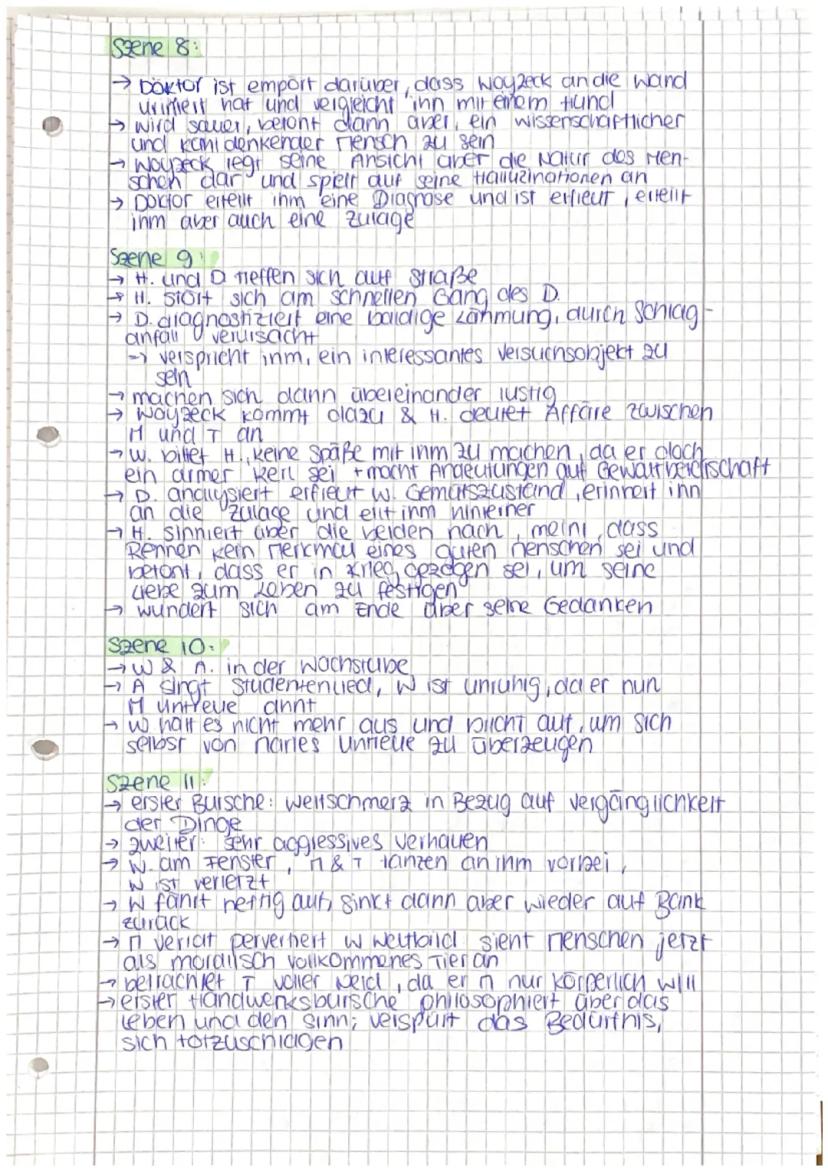 Szene 8:
→ Doktor ist empört darüber, dass Woyzeck an die Wand
uriniert hat und vergleicht ihn mit einem Hund
→ wird sauer, betont dann aber, ein wissenschaftlicher
und denkender Mensch zu sein
→ Woyzeck legt seine Ansicht über die Natur des Men-
schen dar und spielt auf seine Halluzinationen an
→ Doktor erteilt ihm eine Diagnose und ist erfreut, erteilt
ihm aber auch eine Zulage
Szene 9:
→ H. und D treffen sich auf Straße
→ H. stört sich am schnellen Gang des D.
→ D. diagnostiziert eine baldige Lähmung, durch Schlag-
anfall verursacht
→ verspricht ihm, ein interessantes Versuchsobjekt zu
sein
→ machen sich dann übereinander lustig
→ Woyzeck kommt dazu & H. deutet Affäre zwischen
M und T an
→ W. bittet H., keine Späße mit ihm zu machen, da er doch
ein armer Kerl sei + macht Andeutungen auf Gewaltbereitschaft
→ D. analysiert erfreut W. Gemütszustand, erinnert ihn
an die Zulage und eilt ihm hinterher
→ H. sinniert über die beiden nach, meint, dass
Rennen kein Merkmal eines guten Menschen sei und
betont, dass er in Krieg gezogen sei, um seine
Liebe zum Leben zu festigen
→ wundert sich am Ende über seine Gedanken
Szene 10:
→ W & A. in der Wachstube
→ A singt Studentenlied, W ist unruhig, da er nun
M untreue ahnt
→ W hält es nicht mehr aus und bricht auf, um sich
selbst von Maries Untreue zu überzeugen
Szene 11:
→ erster Bursche: Weltschmerz in Bezug auf Vergänglichkeit
der Dinge
→ zweiter: sehr aggressives Verhalten
→ W. am Fenster, M & T tanzen an ihm vorbei,
W ist verletzt
→ W fährt heftig auf, sinkt dann aber wieder auf Bank
zurück
→ M Verrat pervertiert W Weltbild sieht Menschen jetzt
als moralisch vollkommenes Tier an
→ betrachtet T voller Neid, da er M nur körperlich will
→ erster Handwerksbursche philosophiert über das
Leben und den Sinn; verspürt das Bedürfnis,
sich totzuschlagen